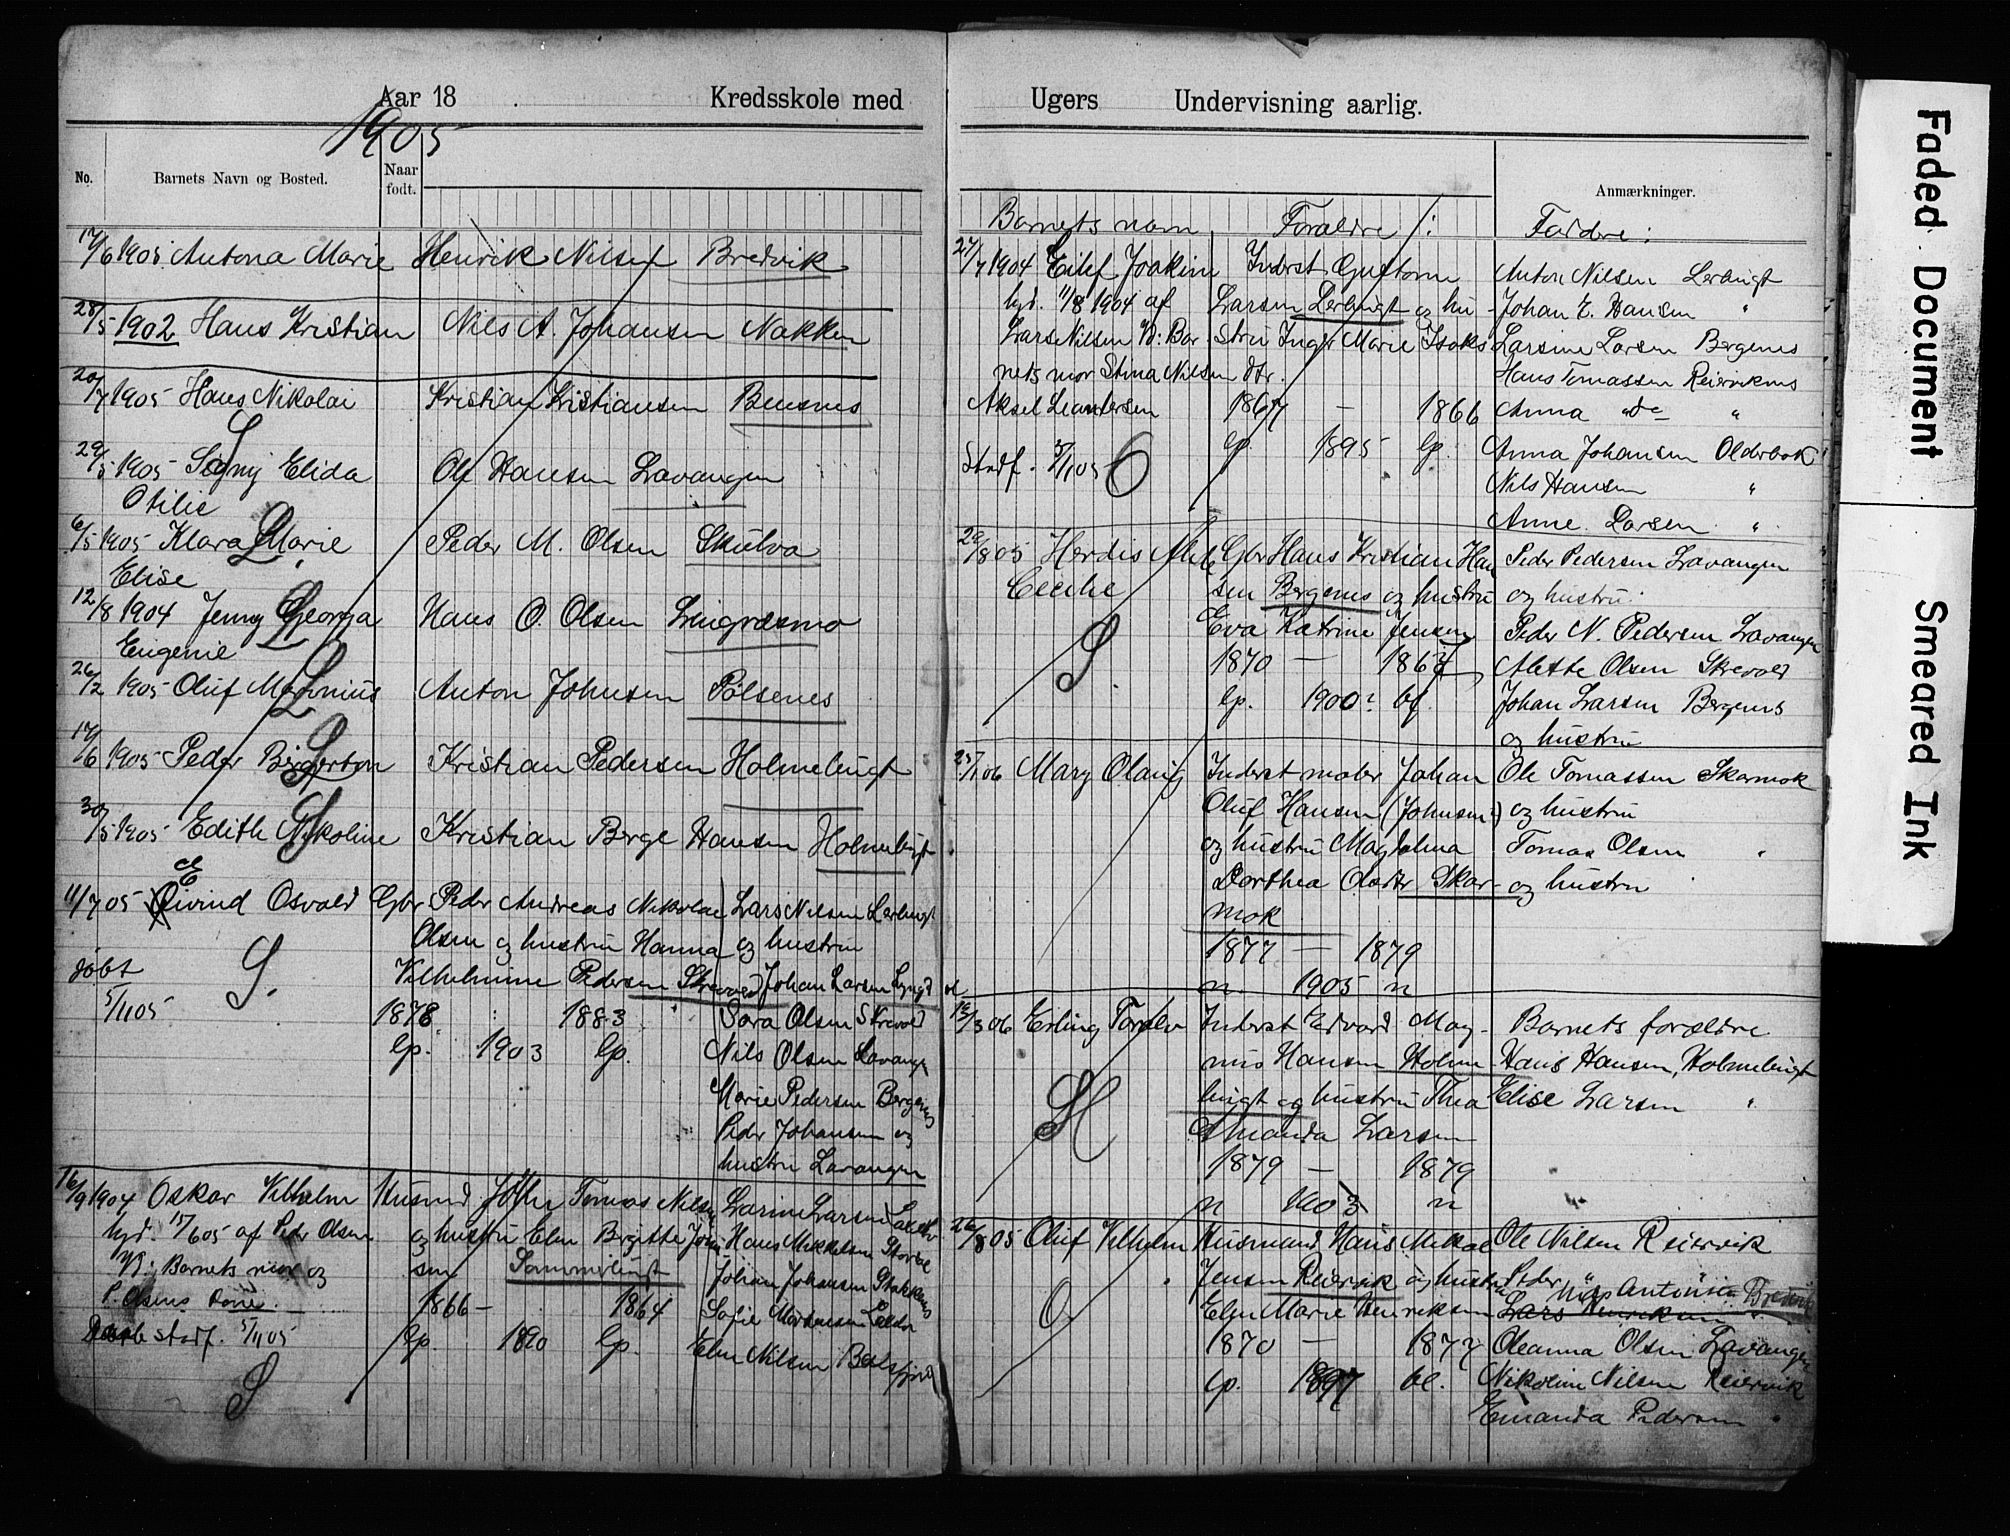 Aar 18 Kredsskole med
1905
No. Barnets Navn og Bosted. Naar født.
17/6 1905 Antona Marie Henrik Nilsen Bredvik
28/5 1902 Hans Kristian Nils A. Johansen Nakken
20/7 1905 Hans Nikolai Kristian Kristiansen Bensnes
S
29/5 1905 Signy Elida Ole Hansen Lavangen
Otilie
6/5 1905 Klara Marie Peder M. Olsen Skutva
Elise
12/8 1904 Jenny Georga Hans O. Olsen
Eugenie
26/2 1905 Oluf Anton Johnsen Pølsenes
17/6 1905 Peder Kristian Pedersen Holmebugt
30/5 1905 Edith Nikoline Kristian Berge Hansen Holmebugt
E
11/7 05 Øivind Osvald Gbr Peder Andreas Nikolai Lars Nilsen Lerbugt
Olsen og hustru Hanna og hustru
døbt Vilhelmine Pedersen Skrevold Johan Larsen
5/11 05 S. 1878 1883 Sara Olsen Skrevold
Gp. 1903 Gp. Nils Olsen Lavangen
Marie Pedersen Bergenes
Peder Johansen og
hustru Lavangen
16/9 1904 Oskar Vilhelm Husmd John Tomas Nilsen Larine Larsen
hjd. 15/6 05 af Peder Olsen og hustru Elen Birgitte Hans Mikkelsen
V: Barnets mor og sen Sommerbugt Johan Johansen Stakkenes
P. Olsens kone. 1866 – 1864 Sofie
stadf. 5/11 05 Gp. 1890 Gp. Elen Nilsen Balsfjord
S
Ugers Undervisning aarlig.
Anmærkninger.
Barnets navn Forældre : Faddere :
27/7 1904 Eilef Joakim Inderst Gustav Anton Nilsen Lerbugt
hjd. 11/8 1904 af Larsen Lerbugt og hu- Johan E. Hansen "
Lars Nilsen V: Bar- stru Inger Marie Isaks Larsine Larsen Bergenes
nets mor Stina Nilsen dtr. Hans Tomassen Reierviknes
Aksel Leandersen 1867 – 1866 Anna do "
Stadf. 5/11 05 O Gp. 1895 Gp. Anna Johansen Olderbak
Nils Hansen "
Anne Larsen "
29/8 05 Herdis Gbr Hans Kristian Han Peder Pedersen Lavangen
Cecilie sen Bergenes og hustru og hustru.
Eva Katrine Jensen Peder N. Pedersen Lavangen
S. 1870 – 1867 Alette Olsen Skrevold
Gp. 1900? Johan Larsen Bergenes
og hustru
25/1 06 Mary Olaug Inderst maler Johan Ole Tomassen Skarmok
Oluf Hansen (Johnsen) og hustru
og hustru Magdalena Tomas Olsen "
Dorthea Olsdtr Skar- og hustru
mok
1877 – 1879
n. 1905 n
19/3 06 Erling Inderst Edvard Mag- Barnets forældre
nus Hansen Holme- Hans Hansen, Holmebugt
bugt og hustru Thea Elise Larsen "
H Amanda Larsen
1879 – 1879
n 1903 n
26/8 05 Oluf Vilhelm Husmand Hans Mikal Ole Nilsen Reiervik
Jensen Reiervik og hustru Peder "
Antonsen Bredvik
O Elen Marie Henriksen Lars Henriksen
1870 – 1872 Oleanna Olsen Lavangen
Gp. 1897 Nikoline Nilsen Reiervik
Emanda Pedersen "
Faded Document
Smeared Ink